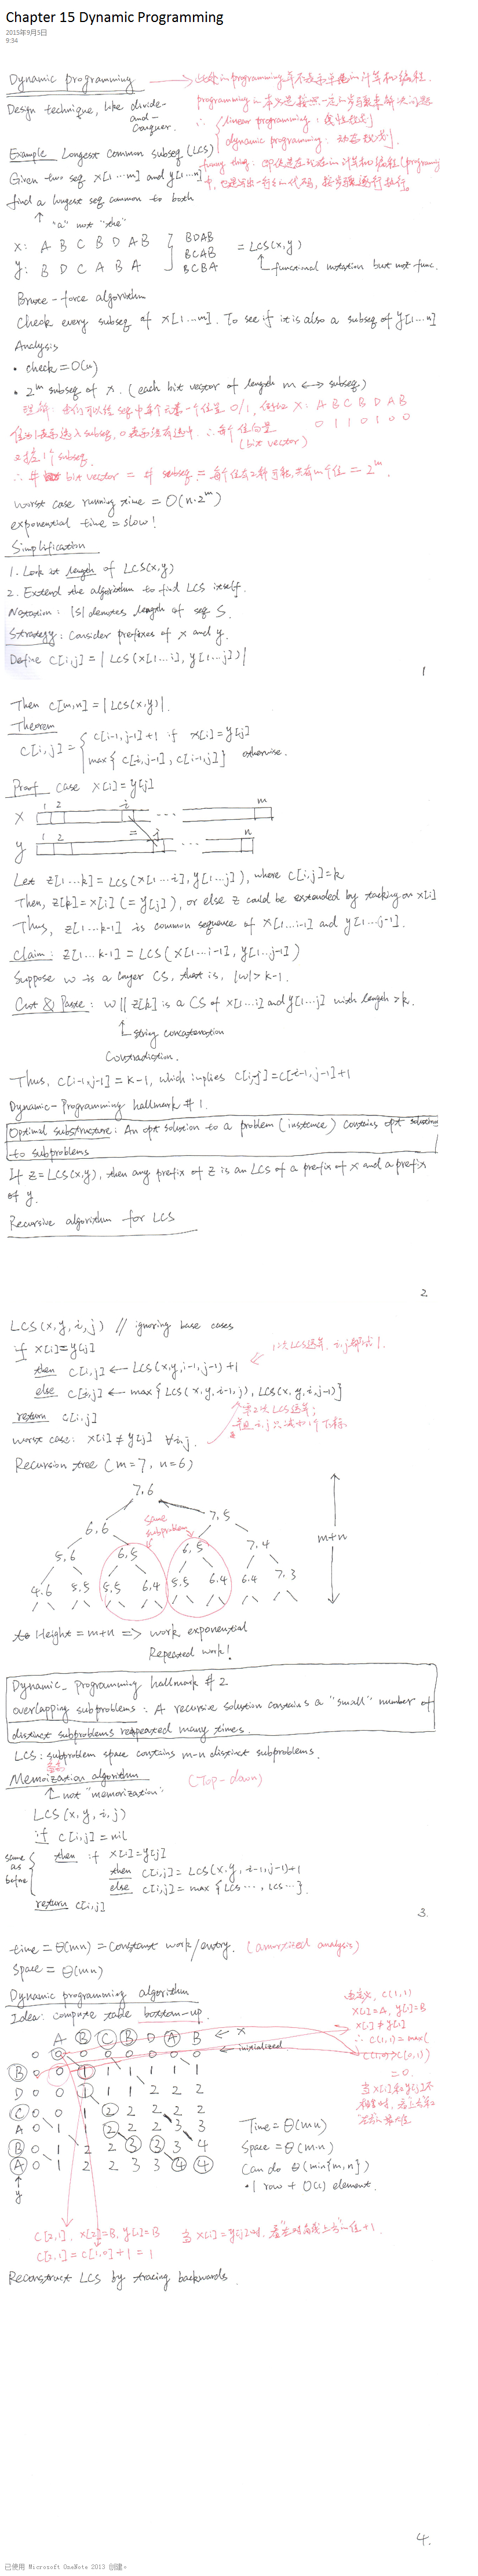 Chapter 15 Dynamic Programming
2015年9月5日
9:34
Dynamic programming
Design technique, like divide-
and-
conquer.
programming的本义是按照一定的步骤来解决问题
linear programming: 线性规划
dynamic programming: 动态规划
Example Longest common subseq (LCS)
Given two seq x[1…m] and y[1…n]
find a longest seq common to both
"a" not "the"
x: A B C B D A B
y: B D C A B A
BDAB
BCAB
BCBA
= LCS(x,y)
functional notation but not func.
Brute-force algorithm
Check every subseq of x[1…m]. To see if it is also a subseq of y[1…n]
Analysis
• check = O(n)
• 2^m subseq of x. (each bit vector of length m ↔ subseq)
x: A B C B D A B
0 1 1 0 1 0 0
(bit vector)
worst case running time = O(n·2^m)
exponential time = slow!
Simplification
1. Look at length of LCS(x,y)
2. Extend the algorithm to find LCS itself.
Notation: |S| denotes length of seq S.
Strategy: Consider prefixes of x and y.
Define c[i,j] = |LCS(x[1…i], y[1…j])|
1
Then c[m,n] = |LCS(x,y)|.
Theorem
c[i,j] = { c[i-1,j-1]+1 if x[i]=y[j]
max{ c[i,j-1], c[i-1,j] } otherwise.
Proof Case x[i]=y[j]
1 2 i … m
x
1 2 = j … n
y
Let z[1…k] = LCS(x[1…i], y[1…j]), where c[i,j]=k
Then, z[k]=x[i] (=y[j]), or else z could be extended by tacking on x[i]
Thus, z[1…k-1] is common sequence of x[1…i-1] and y[1…j-1].
Claim: z[1…k-1] = LCS(x[1…i-1], y[1…j-1])
Suppose w is a longer CS, that is, |w|>k-1.
Cut & Paste: w||z[k] is a CS of x[1…i] and y[1…j] with length >k.
string concatenation
Contradiction.
Thus, c[i-1,j-1]=k-1, which implies c[i,j]=c[i-1,j-1]+1
Dynamic-Programming hallmark #1.
Optimal substructure: An opt solution to a problem (instance) contains opt solution
to subproblems
If z=LCS(x,y), then any prefix of z is an LCS of a prefix of x and a prefix
of y.
Recursive algorithm for LCS
2
LCS(x,y,i,j) // ignoring base cases
if x[i]=y[j]
then c[i,j] ← LCS(x,y,i-1,j-1)+1
else c[i,j] ← max{LCS(x,y,i-1,j), LCS(x,y,i,j-1)}
return c[i,j]
worst case: x[i]≠y[j] ∀i,j
Recursion tree (m=7, n=6)
7,6
6,6 7,5
same
subproblem
5,6 6,5 6,5 7,4
4,6 5,5 5,5 6,4 5,5 6,4 6,4 7,3
m+n
Height = m+n => work exponential
Repeated work!
Dynamic-Programming hallmark #2
overlapping subproblems: A recursive solution contains a "small" number of
distinct subproblems repeated many times.
LCS: subproblem space contains m·n distinct subproblems.
Memoization algorithm (Top-down)
not "memorization".
LCS(x,y,i,j)
if c[i,j]=nil
then if x[i]=y[j]
then c[i,j]=LCS(x,y,i-1,j-1)+1
else c[i,j]=max{LCS…, LCS…}.
same
as
before
return c[i,j]
3.
time = Θ(mn) = Constant work/entry. (amortized analysis)
Space = Θ(mn)
Dynamic programming algorithm
Idea: compute table bottom-up.
A B C B D A B ← x
0 0 0 0 0 0 0 0 ← initialized
B 0 0 1 1 1 1 1 1
D 0 0 1 1 1 2 2 2
C 0 0 1 2 2 2 2 2
A 0 1 1 2 2 2 3 3
B 0 1 2 2 3 3 3 4
A 0 1 2 2 3 3 4 4
y
Time = Θ(mn)
Space = Θ(m·n)
Can do Θ(min{m,n})
• 1 row + O(1) element.
C[2,1], x[2]=B, y[1]=B
C[2,1] = C[1,0]+1 = 1
Reconstruct LCS by tracing backwards.
4.
已使用 Microsoft OneNote 2013 创建。